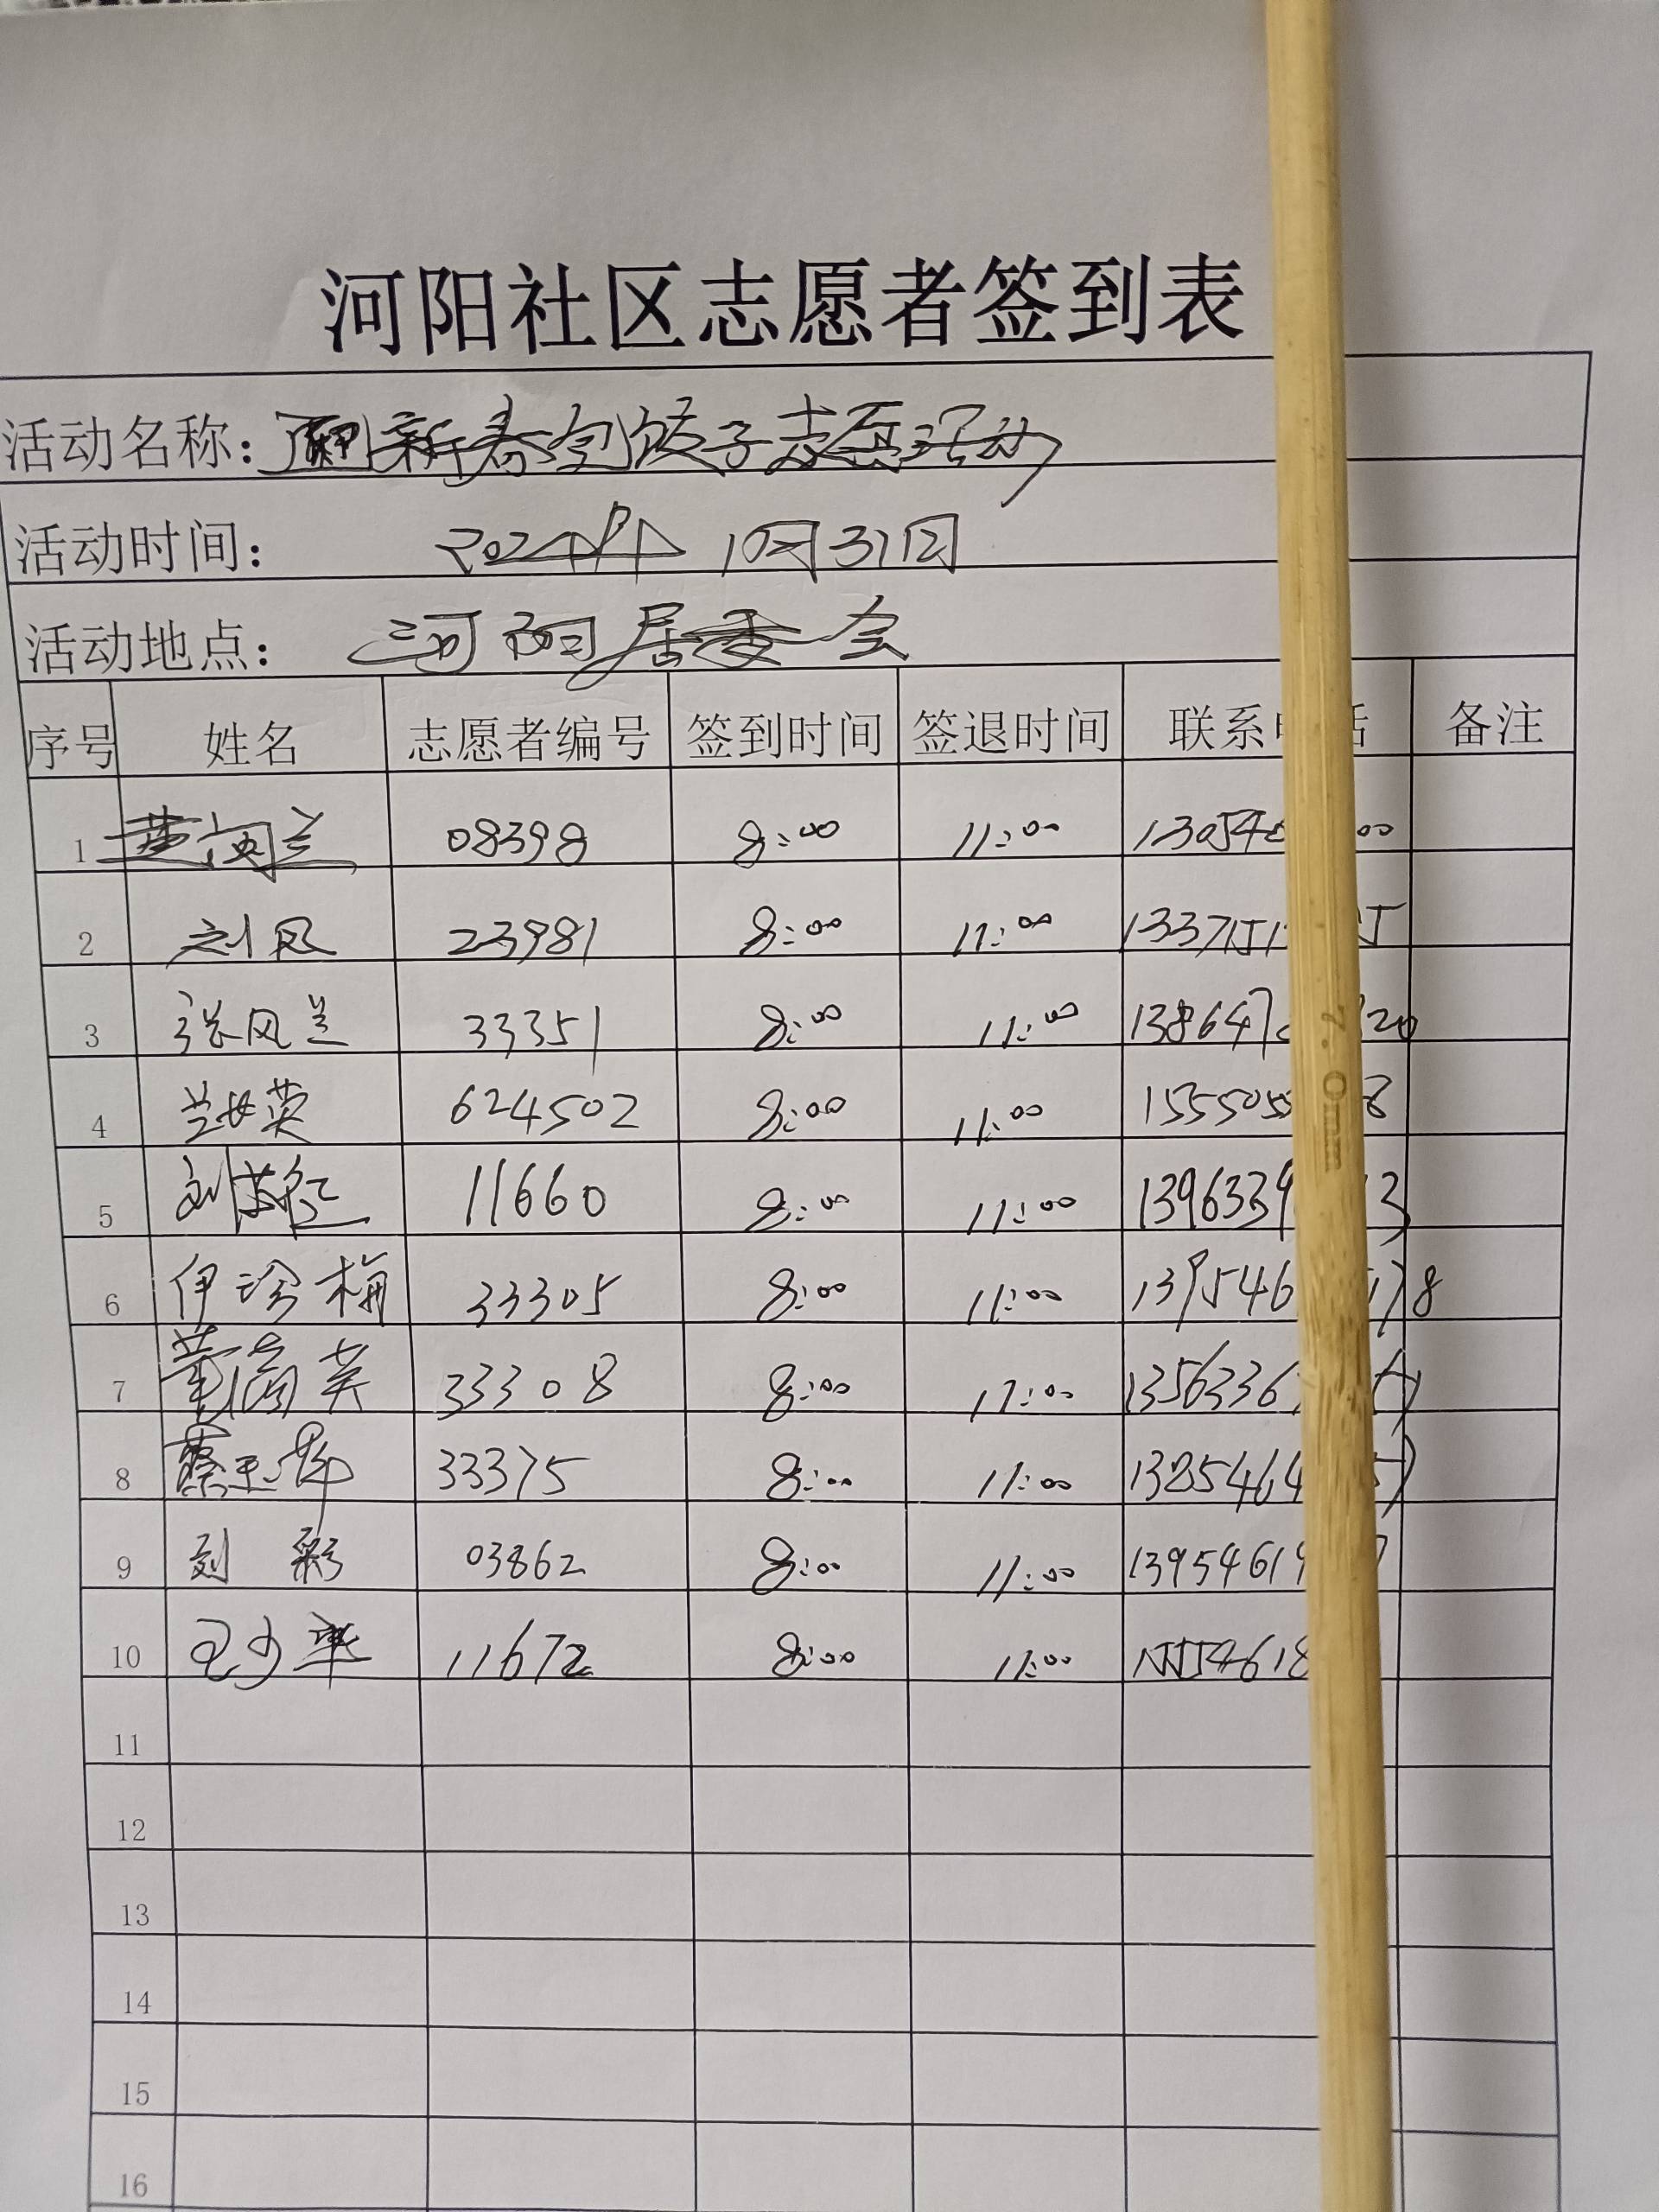 河阳社区志愿者签到表
活动名称: 新春包饺子志愿活动
活动时间: 2024年 10月31日
活动地点: 河阳居委会
序号 姓名 志愿者编号 签到时间 签退时间 联系 话 备注
1 08398 8:00 11:00 130540 00
2 刘风 23981 8:00 11:00 1337151 5
3 张风兰 33351 8:00 11:00 138647 20
4 英 624502 8:00 11:00 1555055 8
5 刘 11660 8:00 11:00 1396339 3
6 伊珍梅 33305 8:00 11:00 139546 178
7 董 英 33308 8:00 11:00 1356336
8 蔡玉 33375 8:00 11:00 1385464 57
9 刘彩 03862 8:00 11:00 13954619 7
10 王少 11672 8:00 11:00 4618
11
12
13
14
15
16
7.0mm